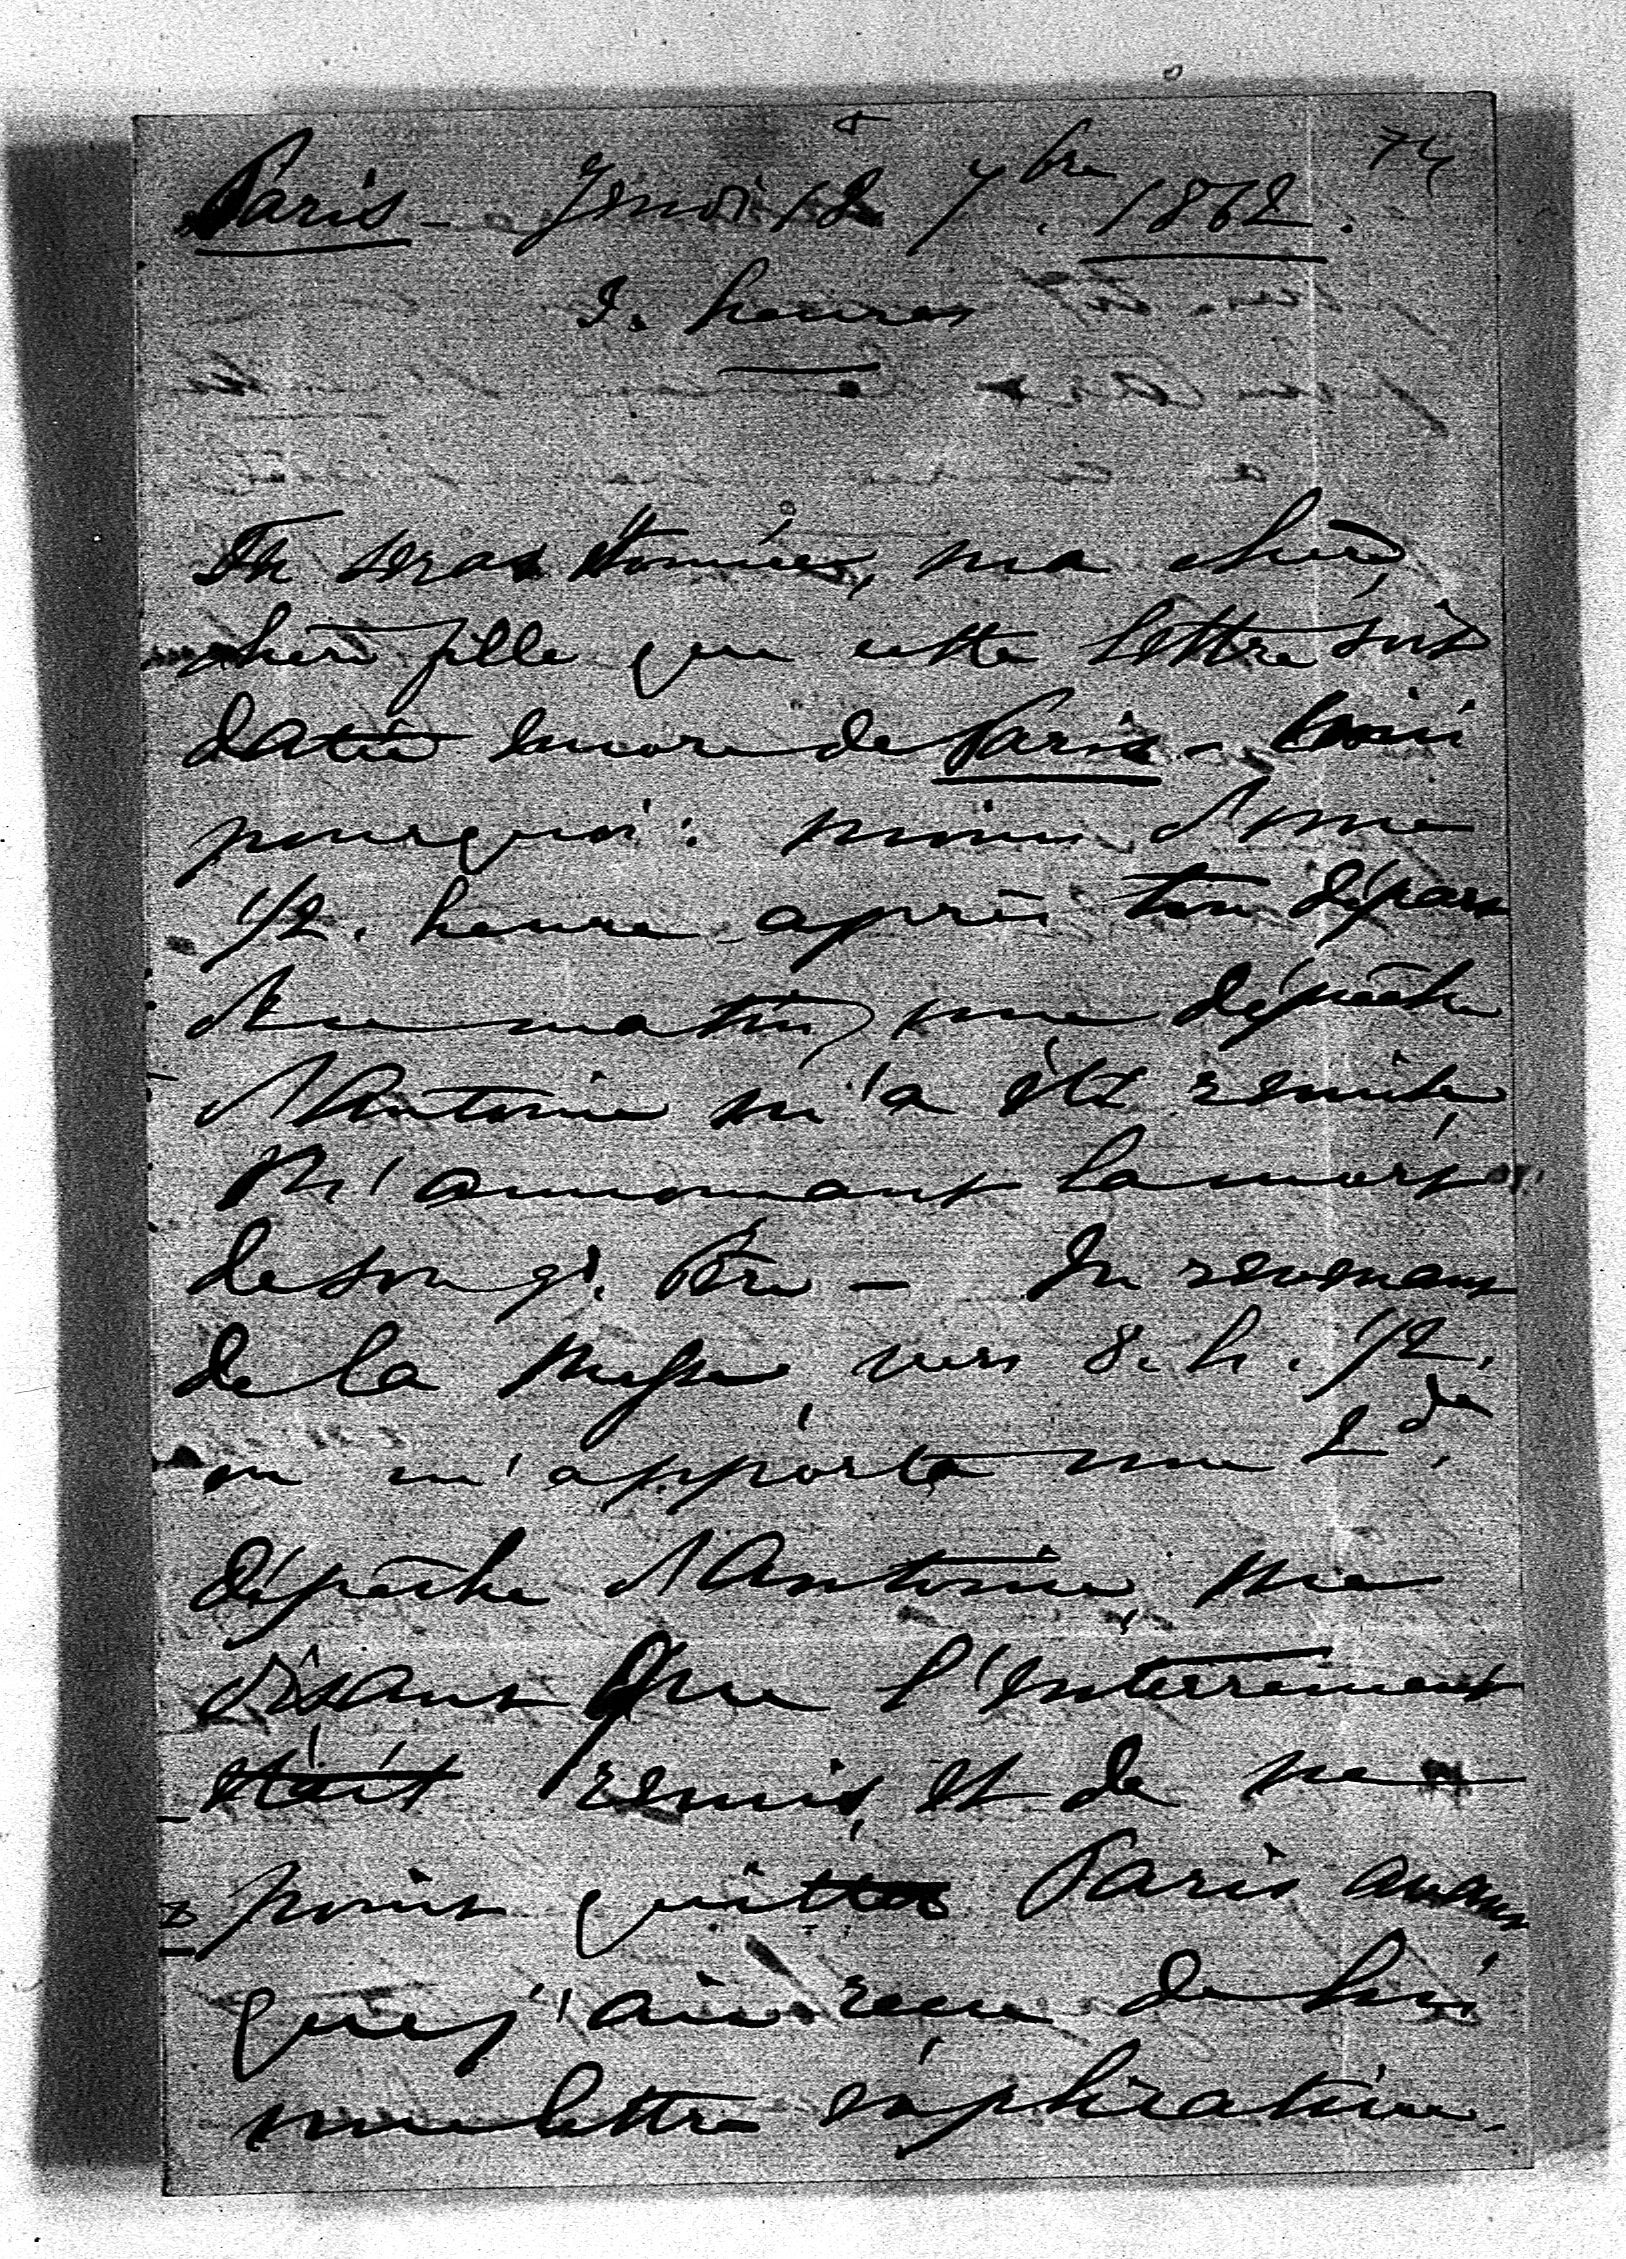 74
Paris - Jeudi 18 7bre. 1862.
2. heures
Tu seras étonnée, ma chère,
chère fille que cette lettre soit
datée encore de Paris - Voici
pourquoi : moins d'une
1/2. heure après ton départ
du matin, une dépêche
d'Antonin m'a été remise
M'annonçant la mort
de son gd. Père - En revenant
de la Messe, vers 8. h. 1/2.
on m'apporta une 2de.
dépêche d'Antonin, me
disant que l'enterrement
était remis, et de ne
point quitter Paris avant
que j'aie recu de lui
une lettre explicative.